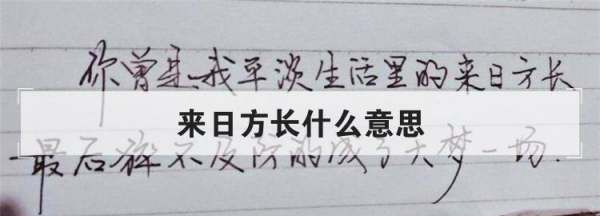 你曾是我平淡生活里的来日方长
来日方长什么意思
最后猝不及防的成了大梦一场.